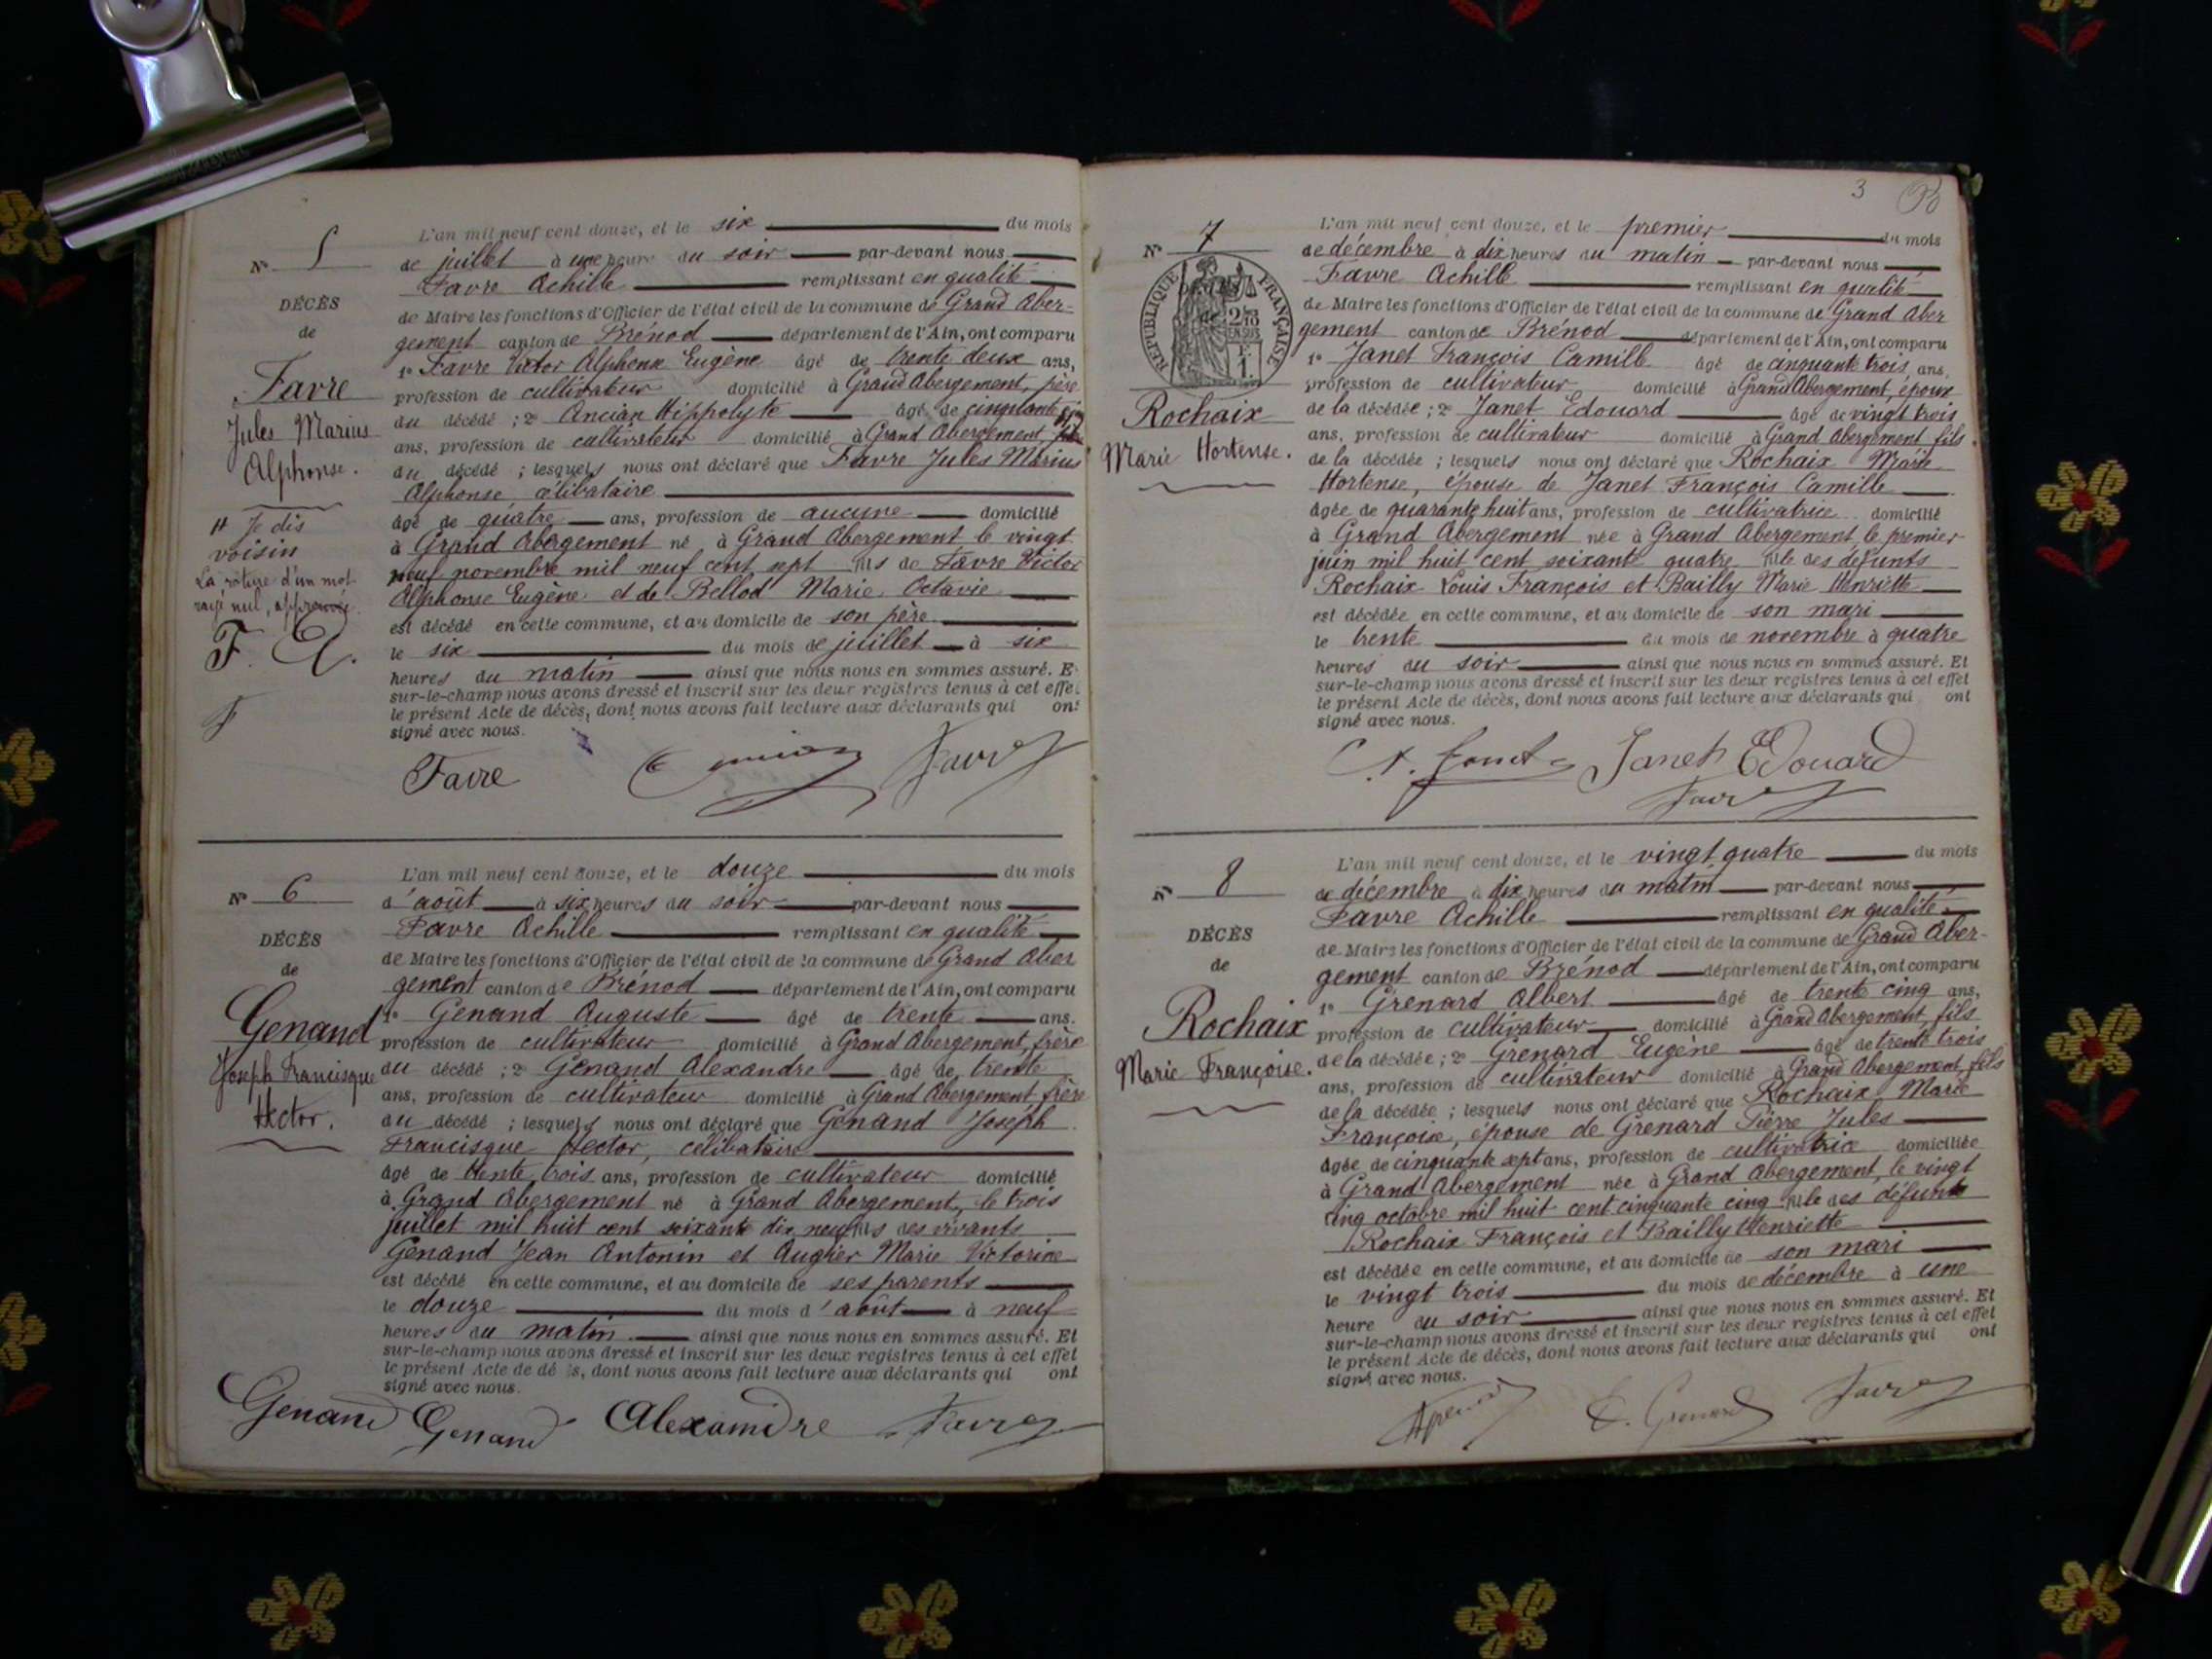 N° 5
DÉCÈS
de
Favre
Jules Marius
Alphonse.
# Je dis
voisin
La rature d'un mot
rayé nul, approuvée.
F. A.
F
L'an mil neuf cent douze, et le six du mois
de juillet à une heure du soir par-devant nous
Favre Achille remplissant en qualité
de Maire les fonctions d'Officier de l'état civil de la commune de Grand Aber-
gement canton de Brénod département de l'Ain, ont comparu
1° Favre Victor Alphonse Eugène âgé de trente deux ans,
profession de cultivateur domicilié à Grand Abergement, père
du décédé ; 2° Ancian Hippolyte âgé de cinquante
ans, profession de cultivateur domicilié à Grand Abergement,
du décédé ; lesquels nous ont déclaré que Favre Jules Marius
Alphonse célibataire
âgé de quatre ans, profession de aucune domicilié
à Grand Abergement né à Grand Abergement le vingt
neuf novembre mil neuf cent sept fils de Favre Victor
Alphonse Eugène et de Bellod Marie Octavie
est décédé en cette commune, et au domicile de son père
le six du mois de juillet à six
heures du matin ainsi que nous nous en sommes assuré. Et
sur-le-champ nous avons dressé et inscrit sur les deux registres tenus à cet effet
le présent Acte de décès, dont nous avons fait lecture aux déclarants qui ont
signé avec nous.
Favre Favre
N° 6
DÉCÈS
de
Genand
Joseph Francisque
Hector.
L'an mil neuf cent douze, et le douze du mois
d'août à six heures du soir par-devant nous
Favre Achille remplissant en qualité
de Maire les fonctions d'Officier de l'état civil de la commune de Grand Aber
gement canton de Brénod département de l'Ain, ont comparu
1° Genand Auguste âgé de trente ans.
profession de cultivateur domicilié à Grand Abergement, frère
du décédé ; 2° Genand Alexandre âgé de trente
ans, profession de cultivateur domicilié à Grand Abergement frère
du décédé ; lesquels nous ont déclaré que Genand Joseph
Francisque Hector, célibataire
âgé de trente trois ans, profession de cultivateur domicilié
à Grand Abergement né à Grand Abergement, le trois
juillet mil huit cent soixante dix neuf fils des vivants
Genand Jean Antonin et Augier Marie Victorine
est décédé en cette commune, et au domicile de ses parents
le douze du mois d'août à neuf
heures du matin ainsi que nous nous en sommes assuré. Et
sur-le-champ nous avons dressé et inscrit sur les deux registres tenus à cet effet
le présent Acte de décès, dont nous avons fait lecture aux déclarants qui ont
signé avec nous.
Genand Genand Alexandre Favre
3
N° 7
RÉPUBLIQUE FRANÇAISE
Rochaix
Marie Hortense.
L'an mil neuf cent douze, et le premier du mois
de décembre à dix heures du matin par-devant nous
Favre Achille remplissant en qualité
de Maire les fonctions d'Officier de l'état civil de la commune de Grand Aber
gement canton de Brénod département de l'Ain, ont comparu
1° Janet François Camille âgé de cinquante trois ans,
profession de cultivateur domicilié à Grand Abergement, époux
de la décédée ; 2° Janet Edouard âgé de vingt trois
ans, profession de cultivateur domicilié à Grand Abergement fils
de la décédée ; lesquels nous ont déclaré que Rochaix Marie
Hortense, épouse de Janet François Camille
âgée de quarante huit ans, profession de cultivatrice domicilié
à Grand Abergement née à Grand Abergement, le premier
juin mil huit cent soixante quatre fille des défunts
Rochaix Louis François et Bailly Marie Henriette
est décédée en cette commune, et au domicile de son mari
le trente du mois de novembre à quatre
heures du soir ainsi que nous nous en sommes assuré. Et
sur-le-champ nous avons dressé et inscrit sur les deux registres tenus à cet effet
le présent Acte de décès, dont nous avons fait lecture aux déclarants qui ont
signé avec nous.
Janet Janet Edouard
Favre
N° 8
DÉCÈS
de
Rochaix
Marie Françoise.
L'an mil neuf cent douze, et le vingt quatre du mois
de décembre à dix heures du matin par-devant nous
Favre Achille remplissant en qualité
de Maire les fonctions d'Officier de l'état civil de la commune de Grand Aber-
gement canton de Brénod département de l'Ain, ont comparu
1° Grenard Albert âgé de trente cinq ans,
profession de cultivateur domicilié à Grand Abergement, fils
de la décédée ; 2° Grenard Eugène âgé de trente trois
ans, profession de cultivateur domicilié à Grand Abergement, fils
de la décédée ; lesquels nous ont déclaré que Rochaix Marie
Françoise, épouse de Grenard Pierre Jules
âgée de cinquante sept ans, profession de cultivatrice domiciliée
à Grand Abergement née à Grand Abergement, le vingt
cinq octobre mil huit cent cinquante cinq fille des défunts
Rochaix François et Bailly Henriette
est décédée en cette commune, et au domicile de son mari
le vingt trois du mois de décembre à une
heure du soir ainsi que nous nous en sommes assuré. Et
sur-le-champ nous avons dressé et inscrit sur les deux registres tenus à cet effet
le présent Acte de décès, dont nous avons fait lecture aux déclarants qui ont
signé avec nous.
E. Grenard Favre